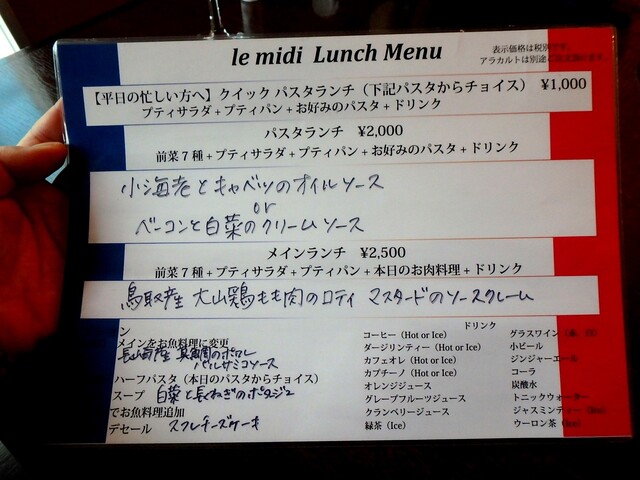 le midi Lunch Menu
表示価格は税別です。
アラカルトは別途ご
【平日の忙しい方へ】クイック パスタランチ（下記パスタからチョイス） ¥1,000
プティサラダ+プティパン+お好みのパスタ+ドリンク
パスタランチ ¥2,000
前菜7種+プティサラダ+プティパン+お好みのパスタ+ドリンク
小海老とキャベツのオイルソース
or
ベーコンと白菜のクリームソース
メインランチ ¥2,500
前菜7種+プティサラダ+プティパン+本日のお肉料理+ドリンク
鳥取産 大山鶏もも肉のロティ マスタードのソースクレーム
ン
メインをお魚料理に変更
真鯛のポワレ
バルサミコソース
ハーフパスタ（本日のパスタからチョイス）
スープ 白菜と長ねぎのポタージュ
でお魚料理追加
デセール スフレチーズケーキ
ドリンク
コーヒー（Hot or Ice）
ダージリンティー（Hot or Ice）
カフェオレ（Hot or Ice）
カプチーノ（Hot or Ice）
オレンジジュース
グレープフルーツジュース
クランベリージュース
緑茶（Ice）
グラスワイン（赤、白）
小ビール
ジンジャーエール
コーラ
炭酸水
トニックウォーター
ジャスミンティー（Ice）
ウーロン茶（Ice）